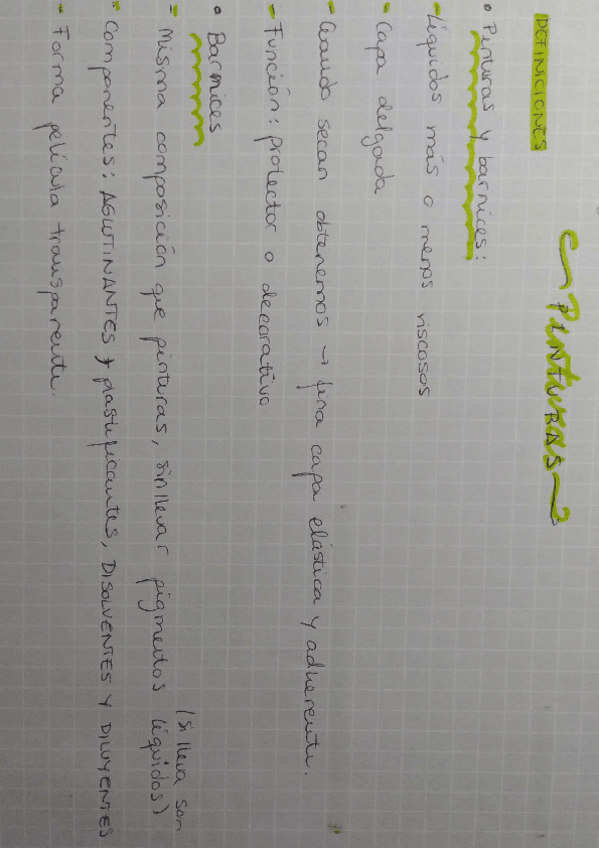 PINTURAS
DEFINICIONES
• Pinturas y barnices:
- Líquidos más o menos viscosos
- Capa delgada
- Cuando secan obtenemos → fina capa elástica y adherente.
- Función: protector o decorativo
• Barnices
- Misma composición que pinturas, sin llevar pigmentos (si lleva son
líquidos)
- Componentes: AGLUTINANTES y plastificantes, DISOLVENTES Y DILUYENTES
- Forma película transparente.